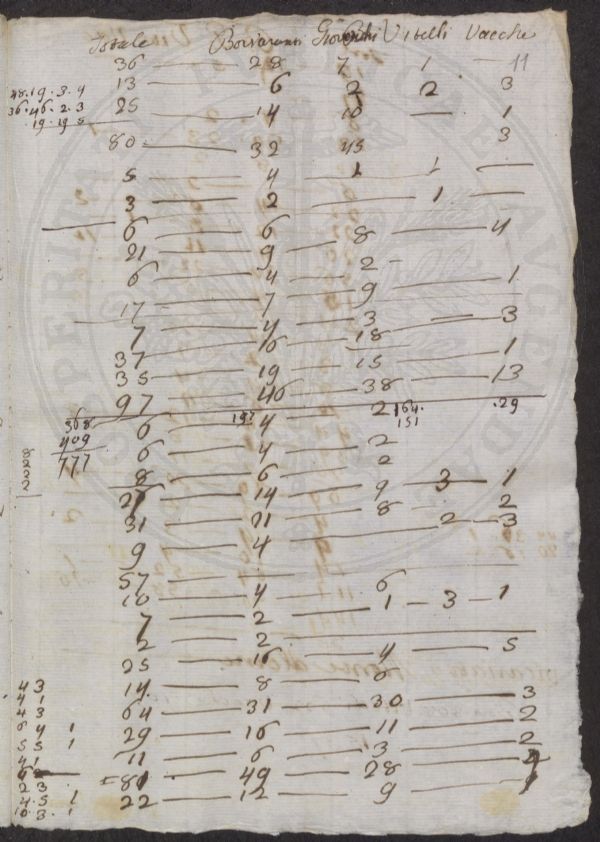 Totale Giovenchi Vitelli Vacche 11
36 — 28 7 1
13 — 6 2 2 3
48.19.3.4
36.46.2.3
19.19 5
25 — 14 10 — 1
80 — 32 45 3
5 — 4 1 1 —
3 — 2 — 1 —
6 — 6 — 8 — 4
21 — 9
6 — 4 — 2 -
17 — 7 — 9 — 1
7 — 4 — 3 — 3
37 — 16 — 18
35 — 19 — 15 — 1
97 — 46 — 38 — 13
368 197 164. .29
409 151
777
6 — 4 — 2
6 — 4 — 2
8 — 6 — 2
27 — 14 — 9 — 3 — 1
31 — 21 — 8 — 2
9 — 4 — 2 — 3
8
2
2
2
57
10 — 4 — 6
1 — 3 — 1
7 — 2
2 — 2
25 — 16 — 4 — 5
14 — 8 — 6
64 — 31 — 30 — 3
29 — 16 — 11 — 2
11 — 6 — 3 — 2
=81 — 49 — 28
22 — 12 — 9
4 3
4 1
4 3
6 4 1
5 5 1
4 1
2 3
4.5 1
10.3.1
PROSPERITATI PVBLICAE AVGENDAE